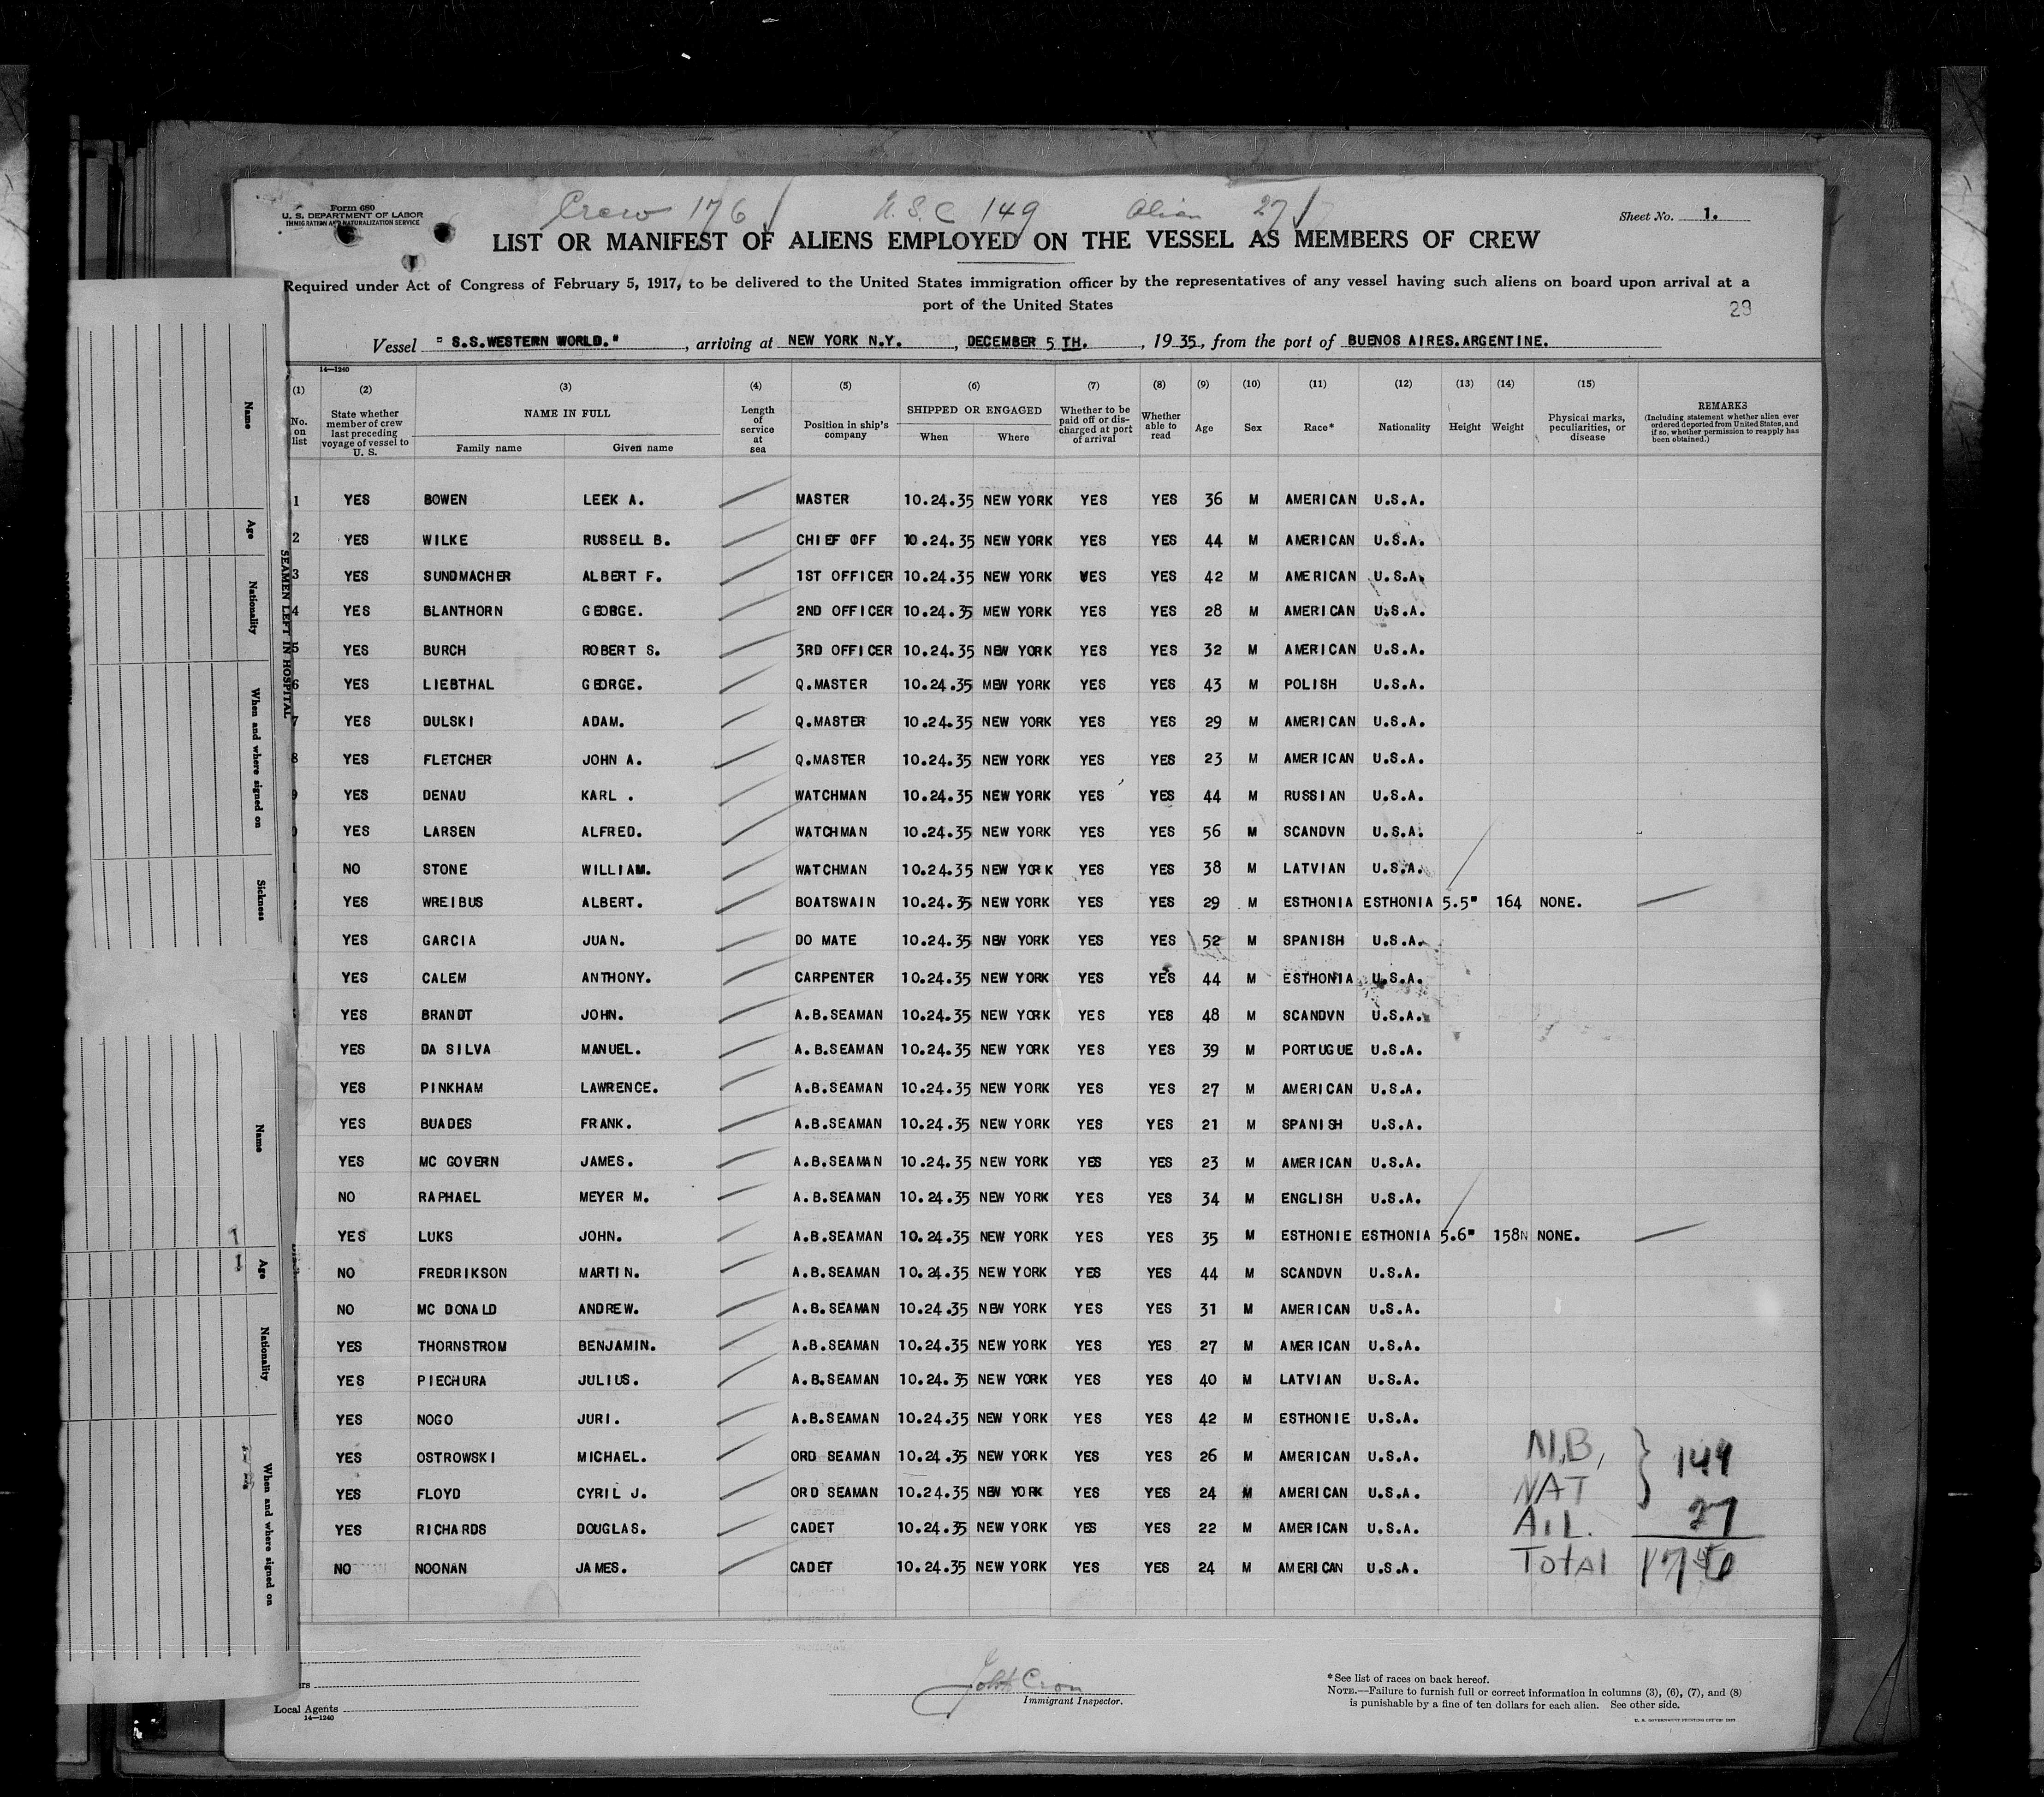 Form 680
U. S. DEPARTMENT OF LABOR
IMMIGRATION AND NATURALIZATION SERVICE
Crew 176 U.S.C 149 Alien 27
Sheet No. 1.
LIST OR MANIFEST OF ALIENS EMPLOYED ON THE VESSEL AS MEMBERS OF CREW
Required under Act of Congress of February 5, 1917, to be delivered to the United States immigration officer by the representatives of any vessel having such aliens on board upon arrival at a
port of the United States
29
Vessel " S.S.WESTERN WORLD." , arriving at NEW YORK N.Y. , DECEMBER 5 TH. , 19 35, from the port of BUENOS AIRES.ARGENTINE.
14—1240
(1) (2) (3) (4) (5) (6) (7) (8) (9) (10) (11) (12) (13) (14) (15)
No. on list State whether member of crew last preceding voyage of vessel to U. S. NAME IN FULL Family name Given name Length of service at sea Position in ship's company SHIPPED OR ENGAGED When Where Whether to be paid off or discharged at port of arrival Whether able to read Age Sex Race* Nationality Height Weight Physical marks, peculiarities, or disease REMARKS (Including statement whether alien ever ordered deported from United States, and if so, whether permission to reapply has been obtained.)
1 YES BOWEN LEEK A. MASTER 10.24.35 NEW YORK YES YES 36 M AMERICAN U.S.A.
2 YES WILKE RUSSELL B. CHIEF OFF 10.24.35 NEW YORK YES YES 44 M AMERICAN U.S.A.
3 YES SUNDMACHER ALBERT F. 1ST OFFICER 10.24.35 NEW YORK YES YES 42 M AMERICAN U.S.A.
4 YES BLANTHORN GEORGE. 2ND OFFICER 10.24.35 MEW YORK YES YES 28 M AMERICAN U.S.A.
5 YES BURCH ROBERT S. 3RD OFFICER 10.24.35 NEW YORK YES YES 32 M AMERICAN U.S.A.
6 YES LIEBTHAL GEORGE. Q.MASTER 10.24.35 MEW YORK YES YES 43 M POLISH U.S.A.
7 YES DULSKI ADAM. Q.MASTER 10.24.35 NEW YORK YES YES 29 M AMERICAN U.S.A.
8 YES FLETCHER JOHN A. Q.MASTER 10.24.35 NEW YORK YES YES 23 M AMERICAN U.S.A.
YES DENAU KARL . WATCHMAN 10.24.35 NEW YORK YES YES 44 M RUSSIAN U.S.A.
YES LARSEN ALFRED. WATCHMAN 10.24.35 NEW YORK YES YES 56 M SCANDVN U.S.A.
NO STONE WILLIAM. WATCHMAN 10.24.35 NEW YORK YES YES 38 M LATVIAN U.S.A.
YES WREIBUS ALBERT. BOATSWAIN 10.24.35 NEW YORK YES YES 29 M ESTHONIA ESTHONIA 5.5" 164 NONE.
YES GARCIA JUAN. DO MATE 10.24.35 NEW YORK YES YES 52 M SPANISH U.S.A.
YES CALEM ANTHONY. CARPENTER 10.24.35 NEW YORK YES YES 44 M ESTHONIA U.S.A.
YES BRANDT JOHN. A.B.SEAMAN 10.24.35 NEW YORK YES YES 48 M SCANDVN U.S.A.
YES DA SILVA MANUEL. A.B.SEAMAN 10.24.35 NEW YORK YES YES 39 M PORTUGUE U.S.A.
YES PINKHAM LAWRENCE. A.B.SEAMAN 10.24.35 NEW YORK YES YES 27 M AMERICAN U.S.A.
YES BUADES FRANK. A.B.SEAMAN 10.24.35 NEW YORK YES YES 21 M SPANISH U.S.A.
YES MC GOVERN JAMES. A.B.SEAMAN 10.24.35 NEW YORK YES YES 23 M AMERICAN U.S.A.
NO RAPHAEL MEYER M. A.B.SEAMAN 10.24.35 NEW YORK YES YES 34 M ENGLISH U.S.A.
YES LUKS JOHN. A.B.SEAMAN 10.24.35 NEW YORK YES YES 35 M ESTHONIE ESTHONIA 5.6" 158N NONE.
NO FREDRIKSON MARTIN. A.B.SEAMAN 10.24.35 NEW YORK YES YES 44 M SCANDVN U.S.A.
NO MC DONALD ANDREW. A.B.SEAMAN 10.24.35 NEW YORK YES YES 31 M AMERICAN U.S.A.
YES THORNSTROM BENJAMIN. A.B.SEAMAN 10.24.35 NEW YORK YES YES 27 M AMERICAN U.S.A.
YES PIECHURA JULIUS. A.B.SEAMAN 10.24.35 NEW YORK YES YES 40 M LATVIAN U.S.A.
YES NOGO JURI. A.B.SEAMAN 10.24.35 NEW YORK YES YES 42 M ESTHONIE U.S.A.
YES OSTROWSKI MICHAEL. ORD SEAMAN 10.24.35 NEW YORK YES YES 26 M AMERICAN U.S.A.
YES FLOYD CYRIL J. ORD SEAMAN 10.24.35 NEW YORK YES YES 24 M AMERICAN U.S.A.
YES RICHARDS DOUGLAS. CADET 10.24.35 NEW YORK YES YES 22 M AMERICAN U.S.A.
NO NOONAN JAMES. CADET 10.24.35 NEW YORK YES YES 24 M AMERICAN U.S.A.
N.B, NAT } 149
A.L. 27
Total 176
Local Agents
14—1240
Immigrant Inspector.
*See list of races on back hereof.
NOTE.—Failure to furnish full or correct information in columns (3), (6), (7), and (8)
is punishable by a fine of ten dollars for each alien. See other side.
SEAMEN LEFT IN HOSPITAL
Name
Age
Nationality
When and where signed on
Sickness
Name
Age
Nationality
When and where signed on